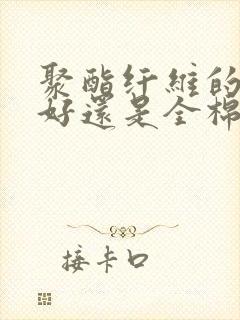 聚酯纤维的
好还是全棉
接卡口